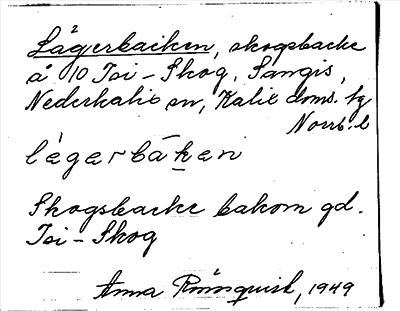 Lågerbacken, skogsbacke
å 10 Isi-Skog, Sangis,
Nederkalix sn, Kalix doms. tg
Norrb. l
lågerbäken
Skogsbacke bakom gd.
Isi-Skog
Anna Rönnquist, 1949